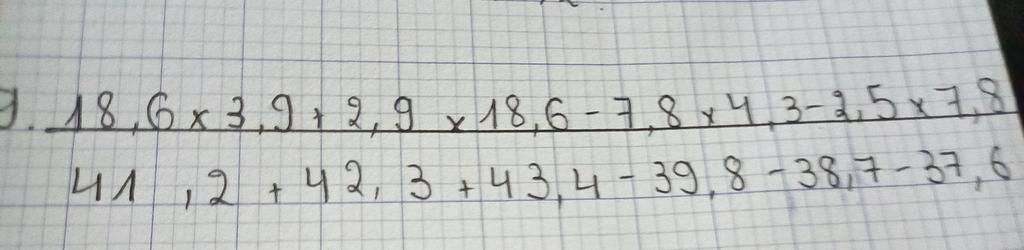 9. 18,6 x 3,9 + 2,9 x 18,6 - 7,8 x 4,3 - 2,5 x 7,8
41,2 + 42,3 + 43,4 - 39,8 - 38,7 - 37,6